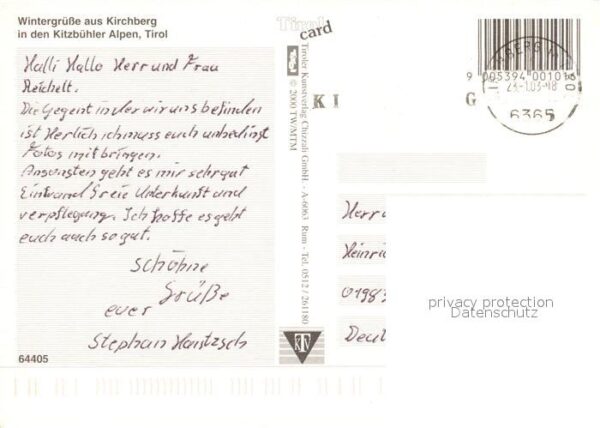 Wintergrüße aus Kirchberg
in den Kitzbühler Alpen, Tirol
Halli Hallo Herr und Frau
Reichelt.
Die Gegent in der wir uns befinden
ist Herlich ich muss euch unbedingt
Fotos mit bringen.
Ansonsten geht es mir sehr gut
Einwand freie Unterkunft und
verpflegung. Ich hoffe es geht
euch auch so gut.
Schöhne
Grüße
euer
Stephan Hantzsch
64405
Tirol
card
Tiroler Kunstverlag Chizzali GmbH. · A-6063 Rum · Tel. 0512 / 261180
© 2000 TW/MTM
KI
G
9 005394 001016
23.-1.03-18
6365
Herr
Heinri
0198
Deut
privacy protection
Datenschutz